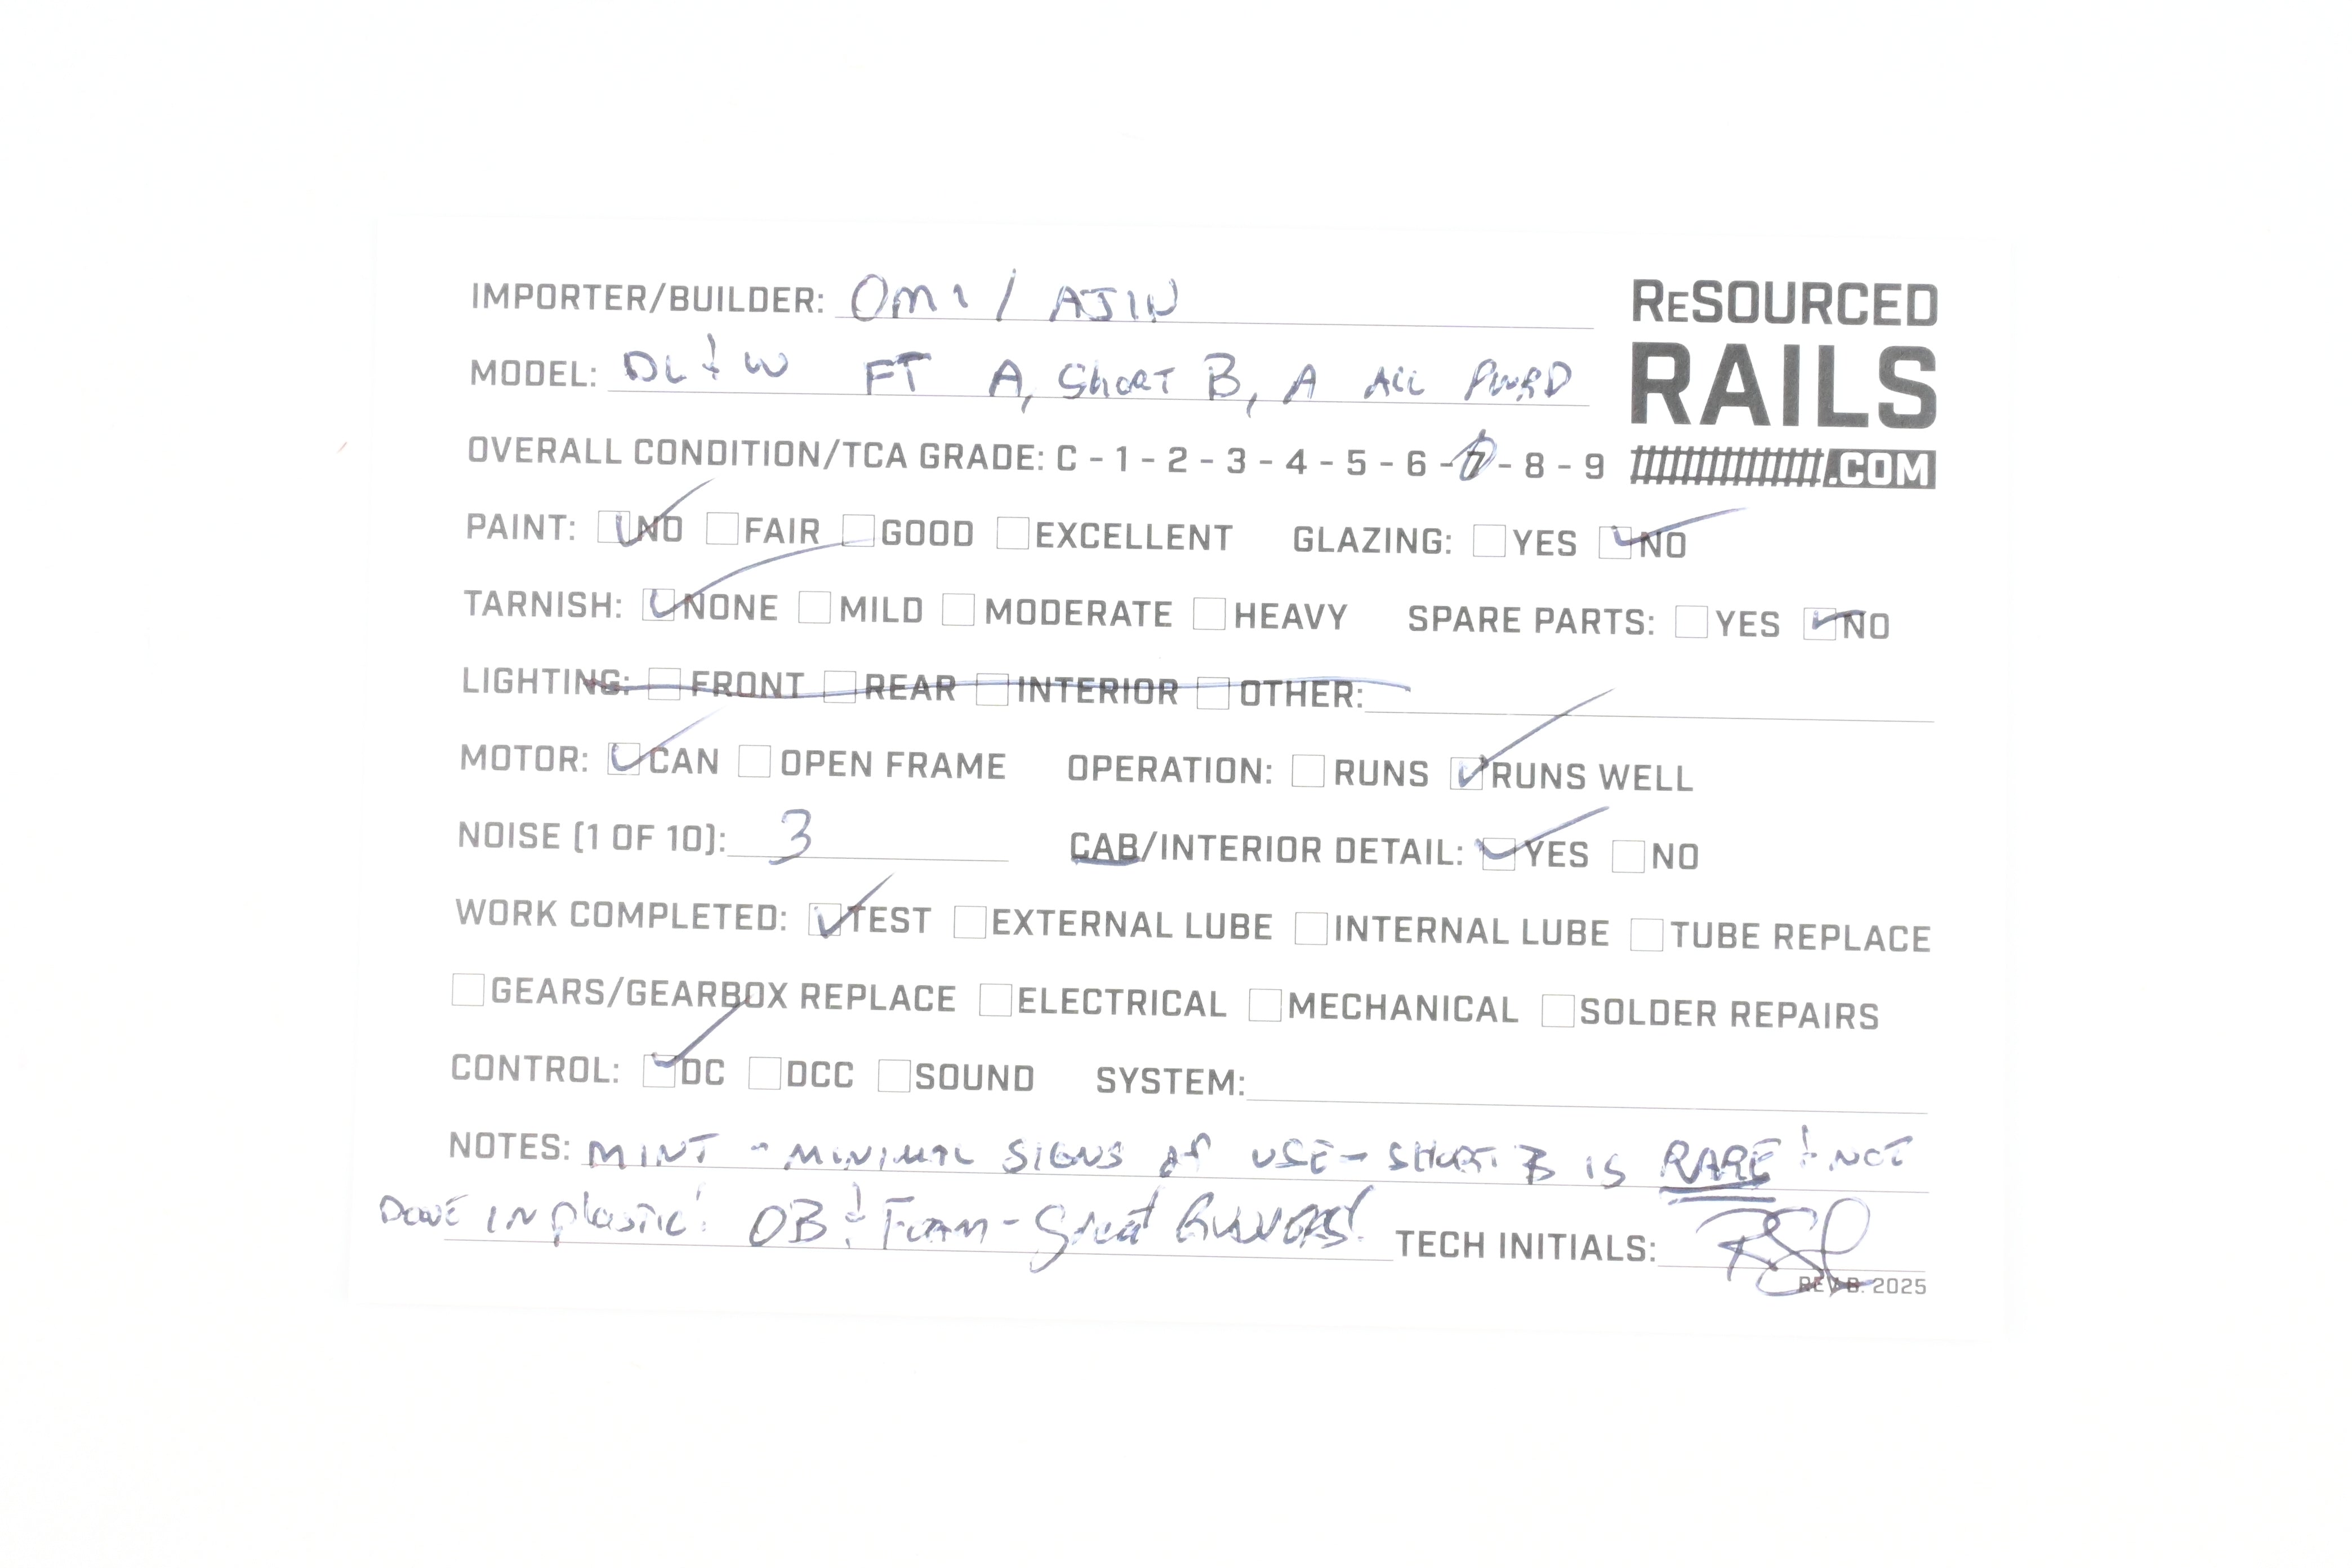 IMPORTER/BUILDER: OMI / AJIN
RESOURCED
RAILS
.COM
MODEL: DL&W FT A, Short B, A ALL PWRD
OVERALL CONDITION/TCA GRADE: C - 1 - 2 - 3 - 4 - 5 - 6 - 7 - 8 - 9
PAINT: NO FAIR GOOD EXCELLENT GLAZING: YES NO
TARNISH: NONE MILD MODERATE HEAVY SPARE PARTS: YES NO
LIGHTING: FRONT REAR INTERIOR OTHER:
MOTOR: CAN OPEN FRAME OPERATION: RUNS RUNS WELL
NOISE (1 OF 10): 3 CAB/INTERIOR DETAIL: YES NO
WORK COMPLETED: TEST EXTERNAL LUBE INTERNAL LUBE TUBE REPLACE
GEARS/GEARBOX REPLACE ELECTRICAL MECHANICAL SOLDER REPAIRS
CONTROL: DC DCC SOUND SYSTEM:
NOTES: MINT - MINIMAL SIGNS OF USE - SHORT B IS RARE & NOT
DONE IN plastic! OB & Foam - Great Runners! TECH INITIALS:
REV B. 2025